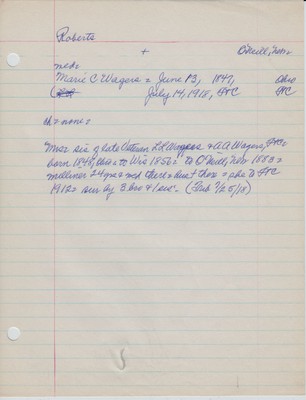 Roberts
+ O'Neill, Neb.
med:
Marie C Wagers = June 13, 1847, Ohio
July 14, 1918, FTC FTC
ch = none =
Mrs = sis of late Veteran L L Wagers & A A Wagers, FTC =
born 1847, Ohio = to Wis 1850 = to O'Neill, Neb 1883 =
milliner 24 yrs = md there = husb there = she to FTC
1912 = surv by 3 bros & 1 sis. =